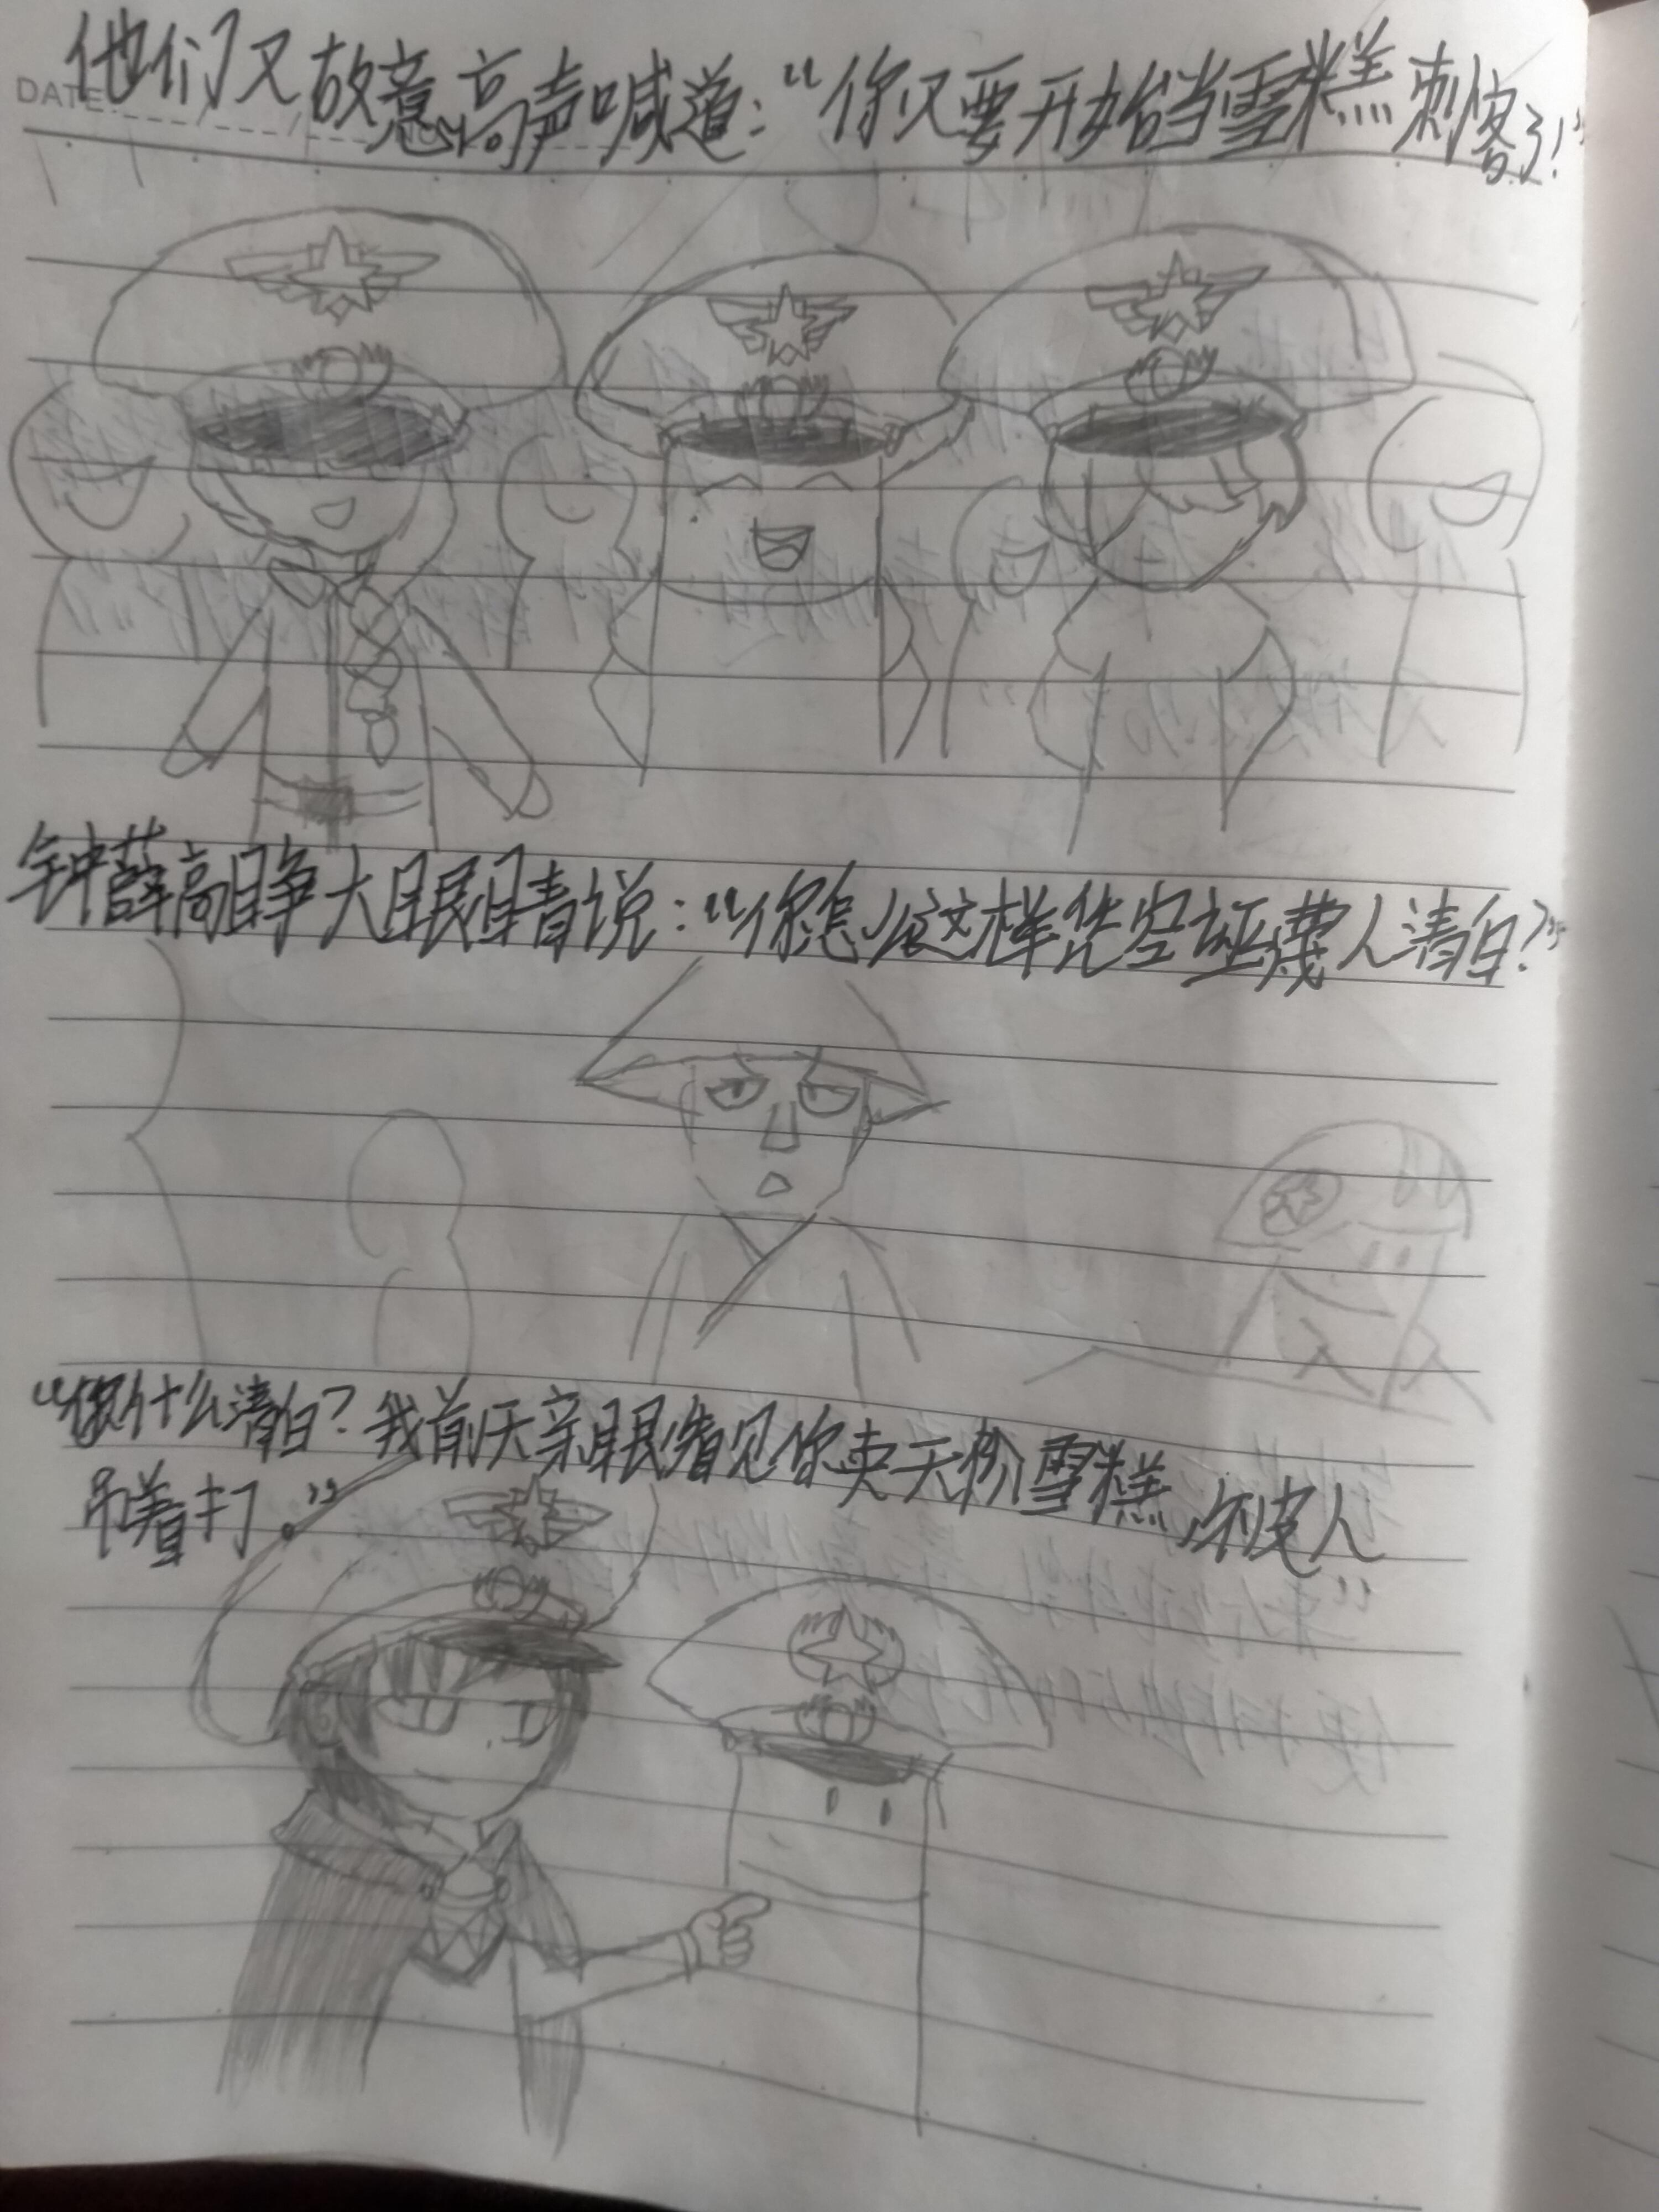 DATE
他们又故意高声喊道：“你又要开始当雪糕刺客了！”
钟薛高睁大眼睛说：“你怎么这样凭空污蔑人清白？”
“你什么清白？我前天亲眼看见你卖天价雪糕，被人
吊着打。”